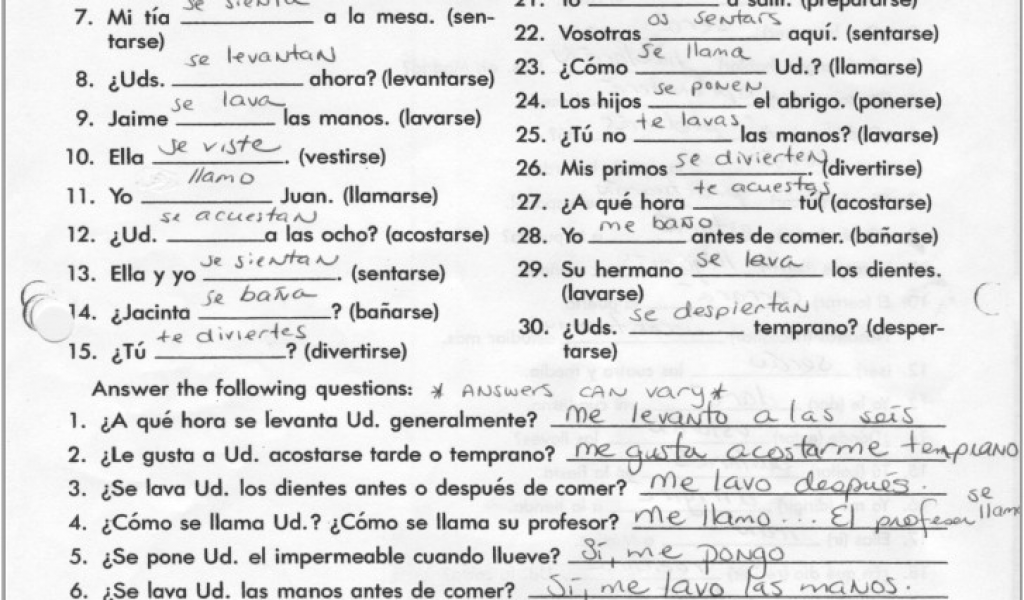 7. Mi tía se sienta a la mesa. (sen-
tarse)
8. ¿Uds. se levantan ahora? (levantarse)
9. Jaime se lava las manos. (lavarse)
10. Ella se viste. (vestirse)
11. Yo llamo Juan. (llamarse)
12. ¿Ud. se acuestan a las ocho? (acostarse)
13. Ella y yo se sientan. (sentarse)
14. ¿Jacinta se baña? (bañarse)
15. ¿Tú te diviertes? (divertirse)
21. Yo a salir. (prepararse)
22. Vosotras os sentais aquí. (sentarse)
23. ¿Cómo se llama Ud.? (llamarse)
24. Los hijos se ponen el abrigo. (ponerse)
25. ¿Tú no te lavas las manos? (lavarse)
26. Mis primos se divierten. (divertirse)
27. ¿A qué hora te acuestas tú? (acostarse)
28. Yo me baño antes de comer. (bañarse)
29. Su hermano se lava los dientes.
(lavarse)
30. ¿Uds. se despiertan temprano? (desper-
tarse)
Answer the following questions: * Answers can vary *
1. ¿A qué hora se levanta Ud. generalmente? me levanto a las seis
2. ¿Le gusta a Ud. acostarse tarde o temprano? me gusta acostarme temprano
3. ¿Se lava Ud. los dientes antes o después de comer? me lavo después.
4. ¿Cómo se llama Ud.? ¿Cómo se llama su profesor? me llamo... El profesor se llama
5. ¿Se pone Ud. el impermeable cuando llueve? Sí, me pongo
6. ¿Se lava Ud. las manos antes de comer? Sí, me lavo las manos.